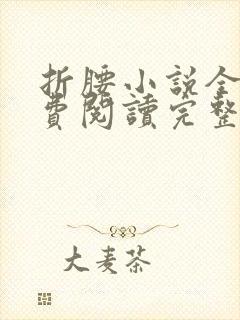 折腰小説全
費閱讀完整
大麦茶